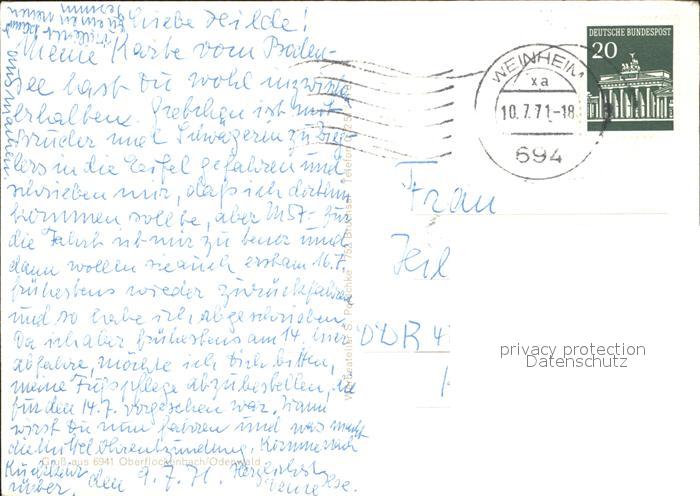 Liebe Hilde!
Meine Karte vom Boden-
see hast Du wohl inzwischen
erhalten. Gretchen ist mit
Bruder und Schwägerin zu
in die Eifel gefahren und
schrieben mir, daß ich dorthin
kommen sollte, aber für
die Fahrt ist mir zu teuer und
dann wollen sie auch erst am 16.7.
frühestens wieder zurückfahren
und so habe ich abgeschrieben.
Da ich aber frühestens am 14. hier
abfahre, möchte ich Dich bitten,
meine Fußpflege abzubestellen, die
für den 14.7. vorgesehen war. Wann
wirst Du nun fahren und was macht
die Mittelohrentzündung. Komme nach
rüber. den 9.7.71. Herzlichst
Deine Ilse.
Gruß aus 6941 Oberflockenbach/Odenwald
DEUTSCHE BUNDESPOST
20
WEINHEIM
xa
10.7.71-18
694
Frau
DDR
privacy protection
Datenschutz